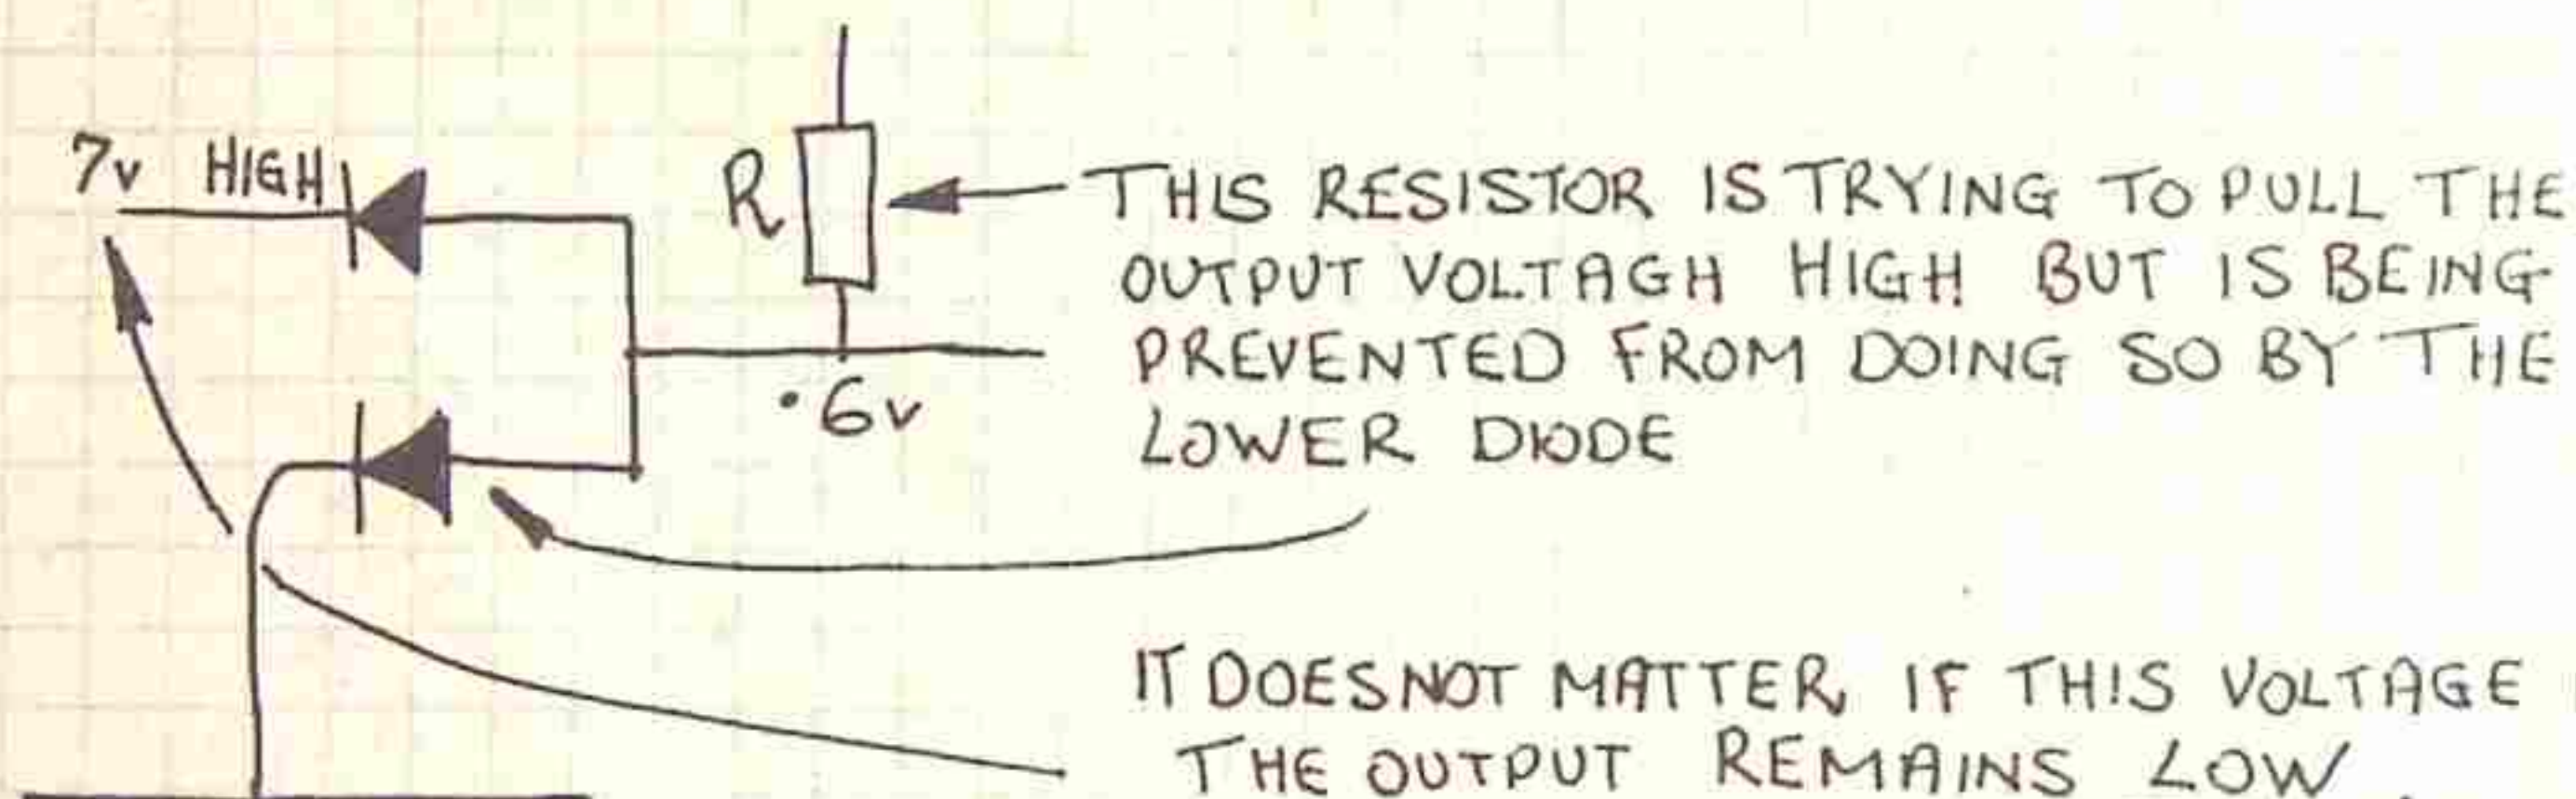 7v HIGH
R
THIS RESISTOR IS TRYING TO PULL THE
OUTPUT VOLTAGH HIGH BUT IS BEING
PREVENTED FROM DOING SO BY THE
LOWER DIODE
.6v
IT DOES NOT MATTER IF THIS VOLTAGE
THE OUTPUT REMAINS LOW